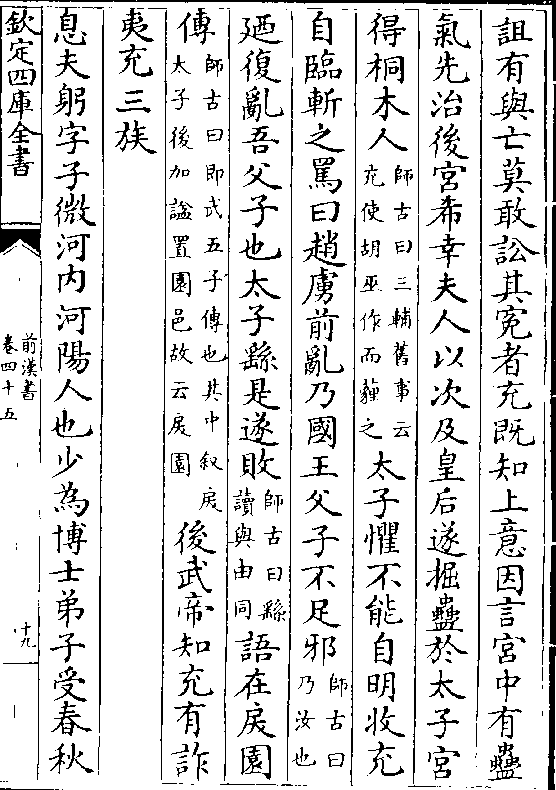 詛有與亡莫敢訟其寃者充既知上意因言宮中有蠱
氣先治後宮希幸夫人以次及皇后遂掘蠱於太子宮
得桐木人師古曰三輔舊事云充使胡巫作而薶之太子懼不能自明收充
自臨斬之罵曰趙虜前亂乃國王父子不足邪師古曰乃汝也
廼復亂吾父子也太子繇是遂敗師古曰繇讀與由同語在戾園
傳師古曰即武五子傳也其中叙戾太子後加諡置園邑故云戾園後武帝知充有詐
夷充三族
息夫躬字子微河内河陽人也少為博士弟子受春秋
欽定四庫全書
前漢書
卷四十五
十九